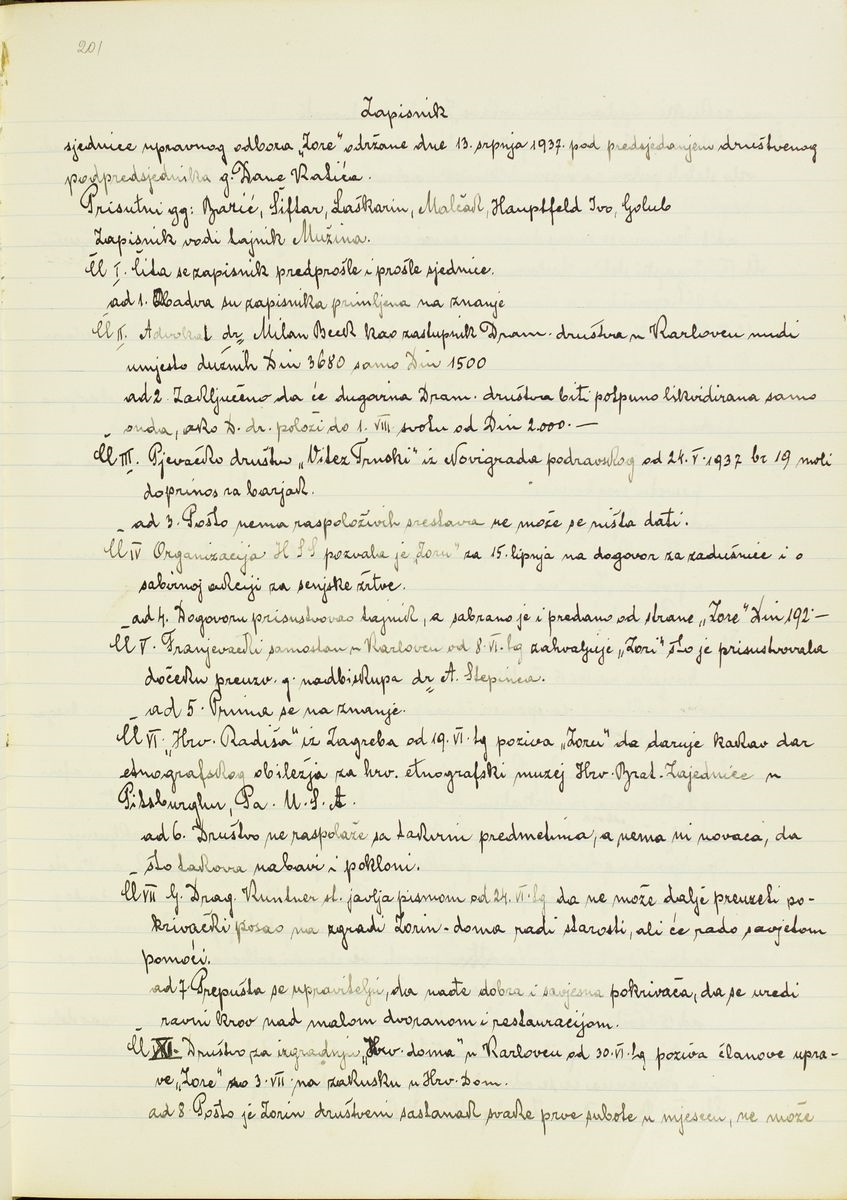 201
Zapisnik
sjednice upravnog odbora „Zore“ održane dne 13. srpnja 1937. pod predsjedanjem društvenog
podpredsjednika g. Dane Katića.
Prisutni gg: Barić, Šiftar, Laškarin, Malčak, Hauptfeld Ivo, Golub
Zapisnik vodi tajnik Mužina.
Čl I. Čita se zapisnik predprošle i prošle sjednice.
ad 1. Obadva su zapisnika primljena na znanje
Čl II. Advokat dr. Milan Beck kao zastupnik Dram. društva u Karlovcu nudi
umjesto dužnih Din 3680 samo Din 1500
ad 2. Zaključeno da će dugovina Dram. društva biti potpuno likvidirana samo
onda, ako D. dr. položi do 1. VIII. svotu od Din 2.000.—
Čl III. Pjevačko društvo „Vitez Trnski“ iz Novigrada podravskog od 24. V. 1937 br 19 moli
doprinos za barjak.
ad 3. Pošto nema raspoloživih srestava ne može se ništa dati.
Čl IV Organizacija HSS pozvala je „Zoru“ za 15. lipnja na dogovor za zadušnice i o
sabirnoj akciji za senjske žrtve.
ad 4. Dogovoru prisustvovao tajnik, a sabrano je i predano od strane „Zore“ Din 192.—
Čl V. Franjevački samostan u Karlovcu od 8. VI. tg zahvaljuje „Zori“ što je prisustvovala
dočeku preuzv. g. nadbiskupa dr. A. Stepinca.
ad 5. Prima se na znanje.
Čl VI. „Hrv. Radiša“ iz Zagreba od 19. VI. tg poziva „Zoru“ da daruje kakav dar
etnografskog obiležja za hrv. etnografski muzej Hrv. Brat. Zajednice u
Pitsburghu, Pa. U.S.A.
ad 6. Društvo ne raspolaže sa takvim predmetima, a nema ni novaca, da
što takova nabavi i pokloni.
Čl VII G. Drag. Kuntner st. javlja pismom od 24. VI. tg da ne može dalje preuzeti po-
krivački posao na zgradi Zorin-doma radi starosti, ali će rado savjetom
pomoći.
ad 7 Prepušta se upravitelju, da nađe dobra i savjesna pokrivača, da se uredi
ravni krov nad malom dvoranom i restauracijom.
Čl Društvo za izgradnju „Hrv. doma“ u Karlovcu od 30. VI. tg poziva članove upra-
ve „Zore“ 3. VII. na zakusku u Hrv. Dom.
ad 8 Pošto je Zorin društveni sastanak svake prve subote u mjesecu, ne može